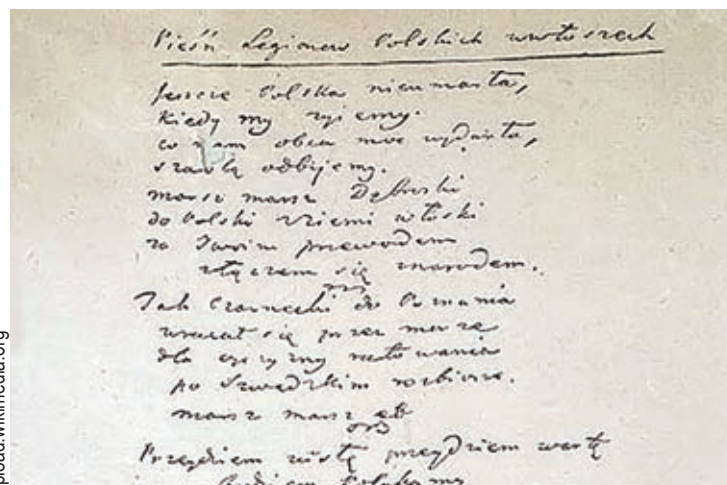 Pieśń Legionów Polskich we Włoszech
Jeszcze Polska nieumarła,
kiedy my żyjemy.
co nam obca moc wydarła,
szablą odbijemy.
marsz marsz Dąbroski
do Polski z ziemi włoski
za Twoim przewodem
złączem się z narodem.
Jak Czarnecki do Poznania
wracał się przez morze
dla ojczyzny ratowania
po Szwedzkim rozbiorze.
marsz marsz etc
Przejdziem Wisłę przejdziem Wartę
będziem Polakamy
pload.wikimedia.org